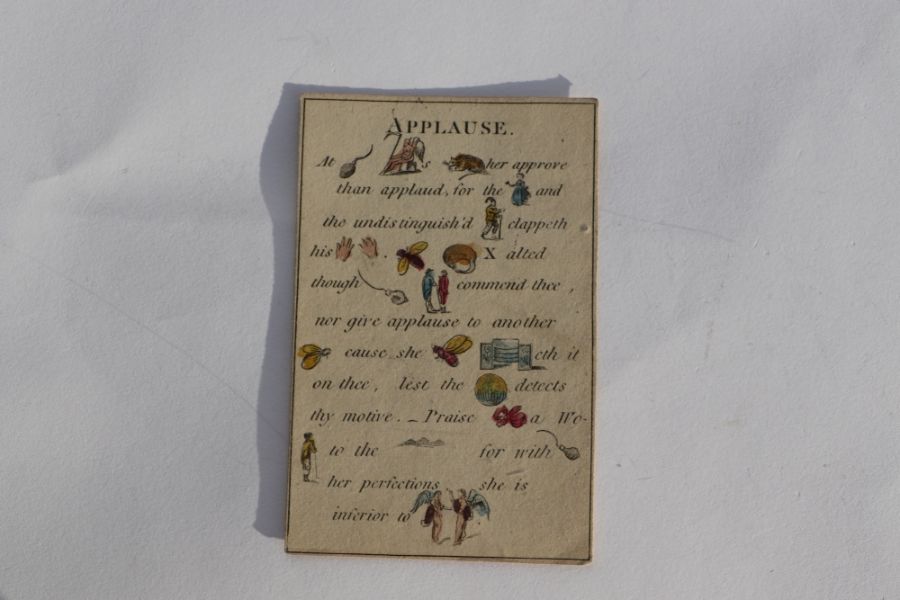 APPLAUSE.
At s her approve
than applaud, for the and
the undistinguish'd clappeth
his . X alted
though commend thee,
nor give applause to another
cause she eth it
on thee, lest the detects
thy motive. – Praise a Wo-
to the for with
her perfections she is
inferior to